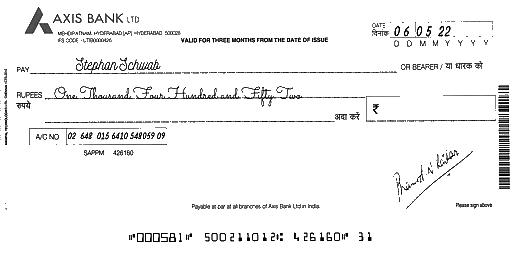 AXIS BANK LTD
MEHDIPATNAM, HYDERABAD [AP] - HYDERABAD 500028
IFS CODE - UTIB0000426
VALID FOR THREE MONTHS FROM THE DATE OF ISSUE
DATE
दिनांक 06 05 22
D D M M Y Y Y Y
PAY Stephan Schwab OR BEARER / या धारक को
RUPEES One Thousand Four Hundred and Fifty Two
रुपये अदा करें ₹
A/C NO 02 648 015 6410 548059 09
SAPPM 426160
Payable at par at all branches of Axis Bank Ltd in India.
Please sign above
⑈000581⑈ 500211012⑆ 426160⑈ 31